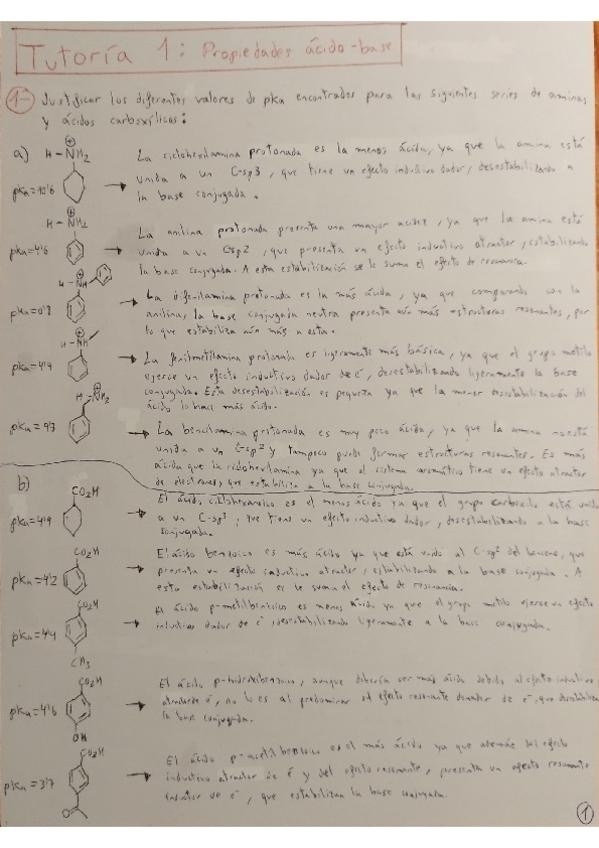 Tutoría 1: Propiedades ácido-base
1- Justificar los diferentes valores de pka encontrados para las siguientes series de aminas
y ácidos carboxílicos:
a) H-NH2
pKa=10'6
La ciclohexilamina protonada es la menos ácida, ya que la amina está
unida a un Csp3, que tiene un efecto inductivo dador, desestabilizando a
la base conjugada.
H-NH2
pKa=4'6
La anilina protonada presenta una mayor acidez, ya que la amina está
unida a un Csp2, que presenta un efecto inductivo atractor, estabilizando
la base conjugada. A esta estabilización se le suma el efecto de resonancia.
H-NH
pKa=0'8
La difenilamina protonada es la más ácida, ya que comparando con la
anilina, la base conjugada neutra presenta aún más estructuras resonantes, por
lo que estabiliza aún más a esta.
H-NH
pKa=4'9
La fenilmetilamina protonada es ligeramente más básica, ya que el grupo metilo
ejerce un efecto inductivo dador de e-, desestabilizando ligeramente la base
conjugada. Esta desestabilización es pequeña ya que la menor del
ácido lo hace más ácido.
H-NH2
pKa=9'3
La bencilamina protonada es muy poco ácida, ya que la amina no está
unida a un Csp2 y tampoco puede formar estructuras resonantes. Es más
ácida que la ciclohexilamina ya que el sistema aromático tiene un efecto atractor
de electrones, que estabiliza a la base conjugada.
b) CO2H
pKa=4'9
El ácido es el menos ácido ya que el grupo carboxilo está unido
a un C-sp3, que tiene un efecto inductivo dador, desestabilizando a la base
conjugada.
CO2H
pKa=4'2
El ácido benzoico es más ácido ya que está unido al C-sp2 del benceno, que
presenta un efecto inductivo atractor, estabilizando a la base conjugada. A
esta estabilización se le suma el efecto de resonancia.
CO2H
pKa=4'4
CH3
El ácido p-metilbenzoico es menos ácido ya que el grupo metilo ejerce un efecto
inductivo dador de e-, desestabilizando ligeramente a la base conjugada.
CO2H
pKa=4'6
OH
El ácido p-hidroxibenzoico, aunque debería ser más ácido debido al efecto inductivo
de e-, no lo es al predominar el efecto resonante donador de e-, que desestabiliza
la base conjugada.
CO2H
pKa=3'7
El ácido p-acetilbenzoico es el más ácido ya que además del efecto
inductivo atractor de e- y del efecto resonante, presenta un efecto resonante
de e-, que estabilizan la base conjugada.
1